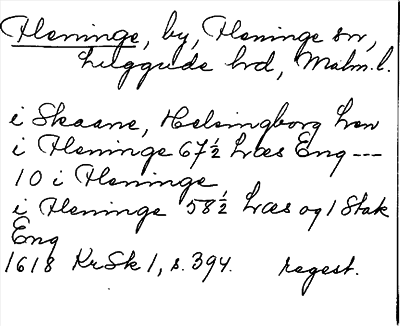 Fleninge, by, Fleninge sn,
Luggude hrd, Malm. l.
i Skaane, Helsingborg Len
i Fleninge 67½ Læs Eng ---
10 i Fleninge
i Fleninge 58½ Læs og 1 Stak
Eng
1618 KrSk 1, s. 394. regest.